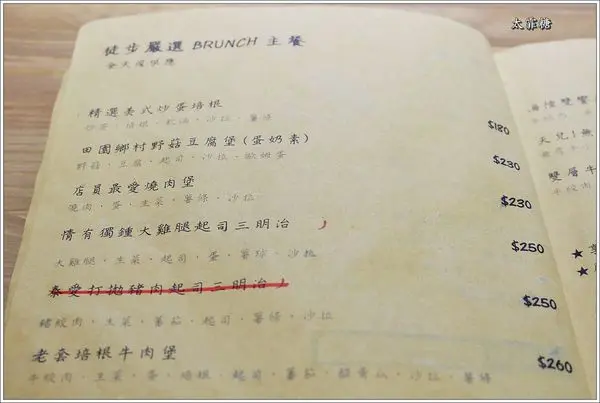 太雅糖
徒步嚴選 BRUNCH 主餐
全天候供應
精選美式炒蛋培根
炒蛋．培根．乾酪．沙拉．薯條
$180
田園鄉村野菇豆腐堡(蛋奶素)
野菇．豆腐．起司．沙拉．歐姆蛋
$230
店員最愛燒肉堡
燒肉．蛋．生菜．薯條．沙拉
$230
情有獨鍾大雞腿起司三明治
大雞腿．生菜．起司．蛋．薯條．沙拉
$250
泰愛打拋豬肉起司三明治
豬絞肉．生菜．蕃茄．起司．薯條．沙拉
$250
老套培根牛肉堡
牛絞肉．生菜．蛋．培根．起司．蕃茄．酸黃瓜．沙拉．薯條
$260
天兒！無
雙層牛
牛絞肉